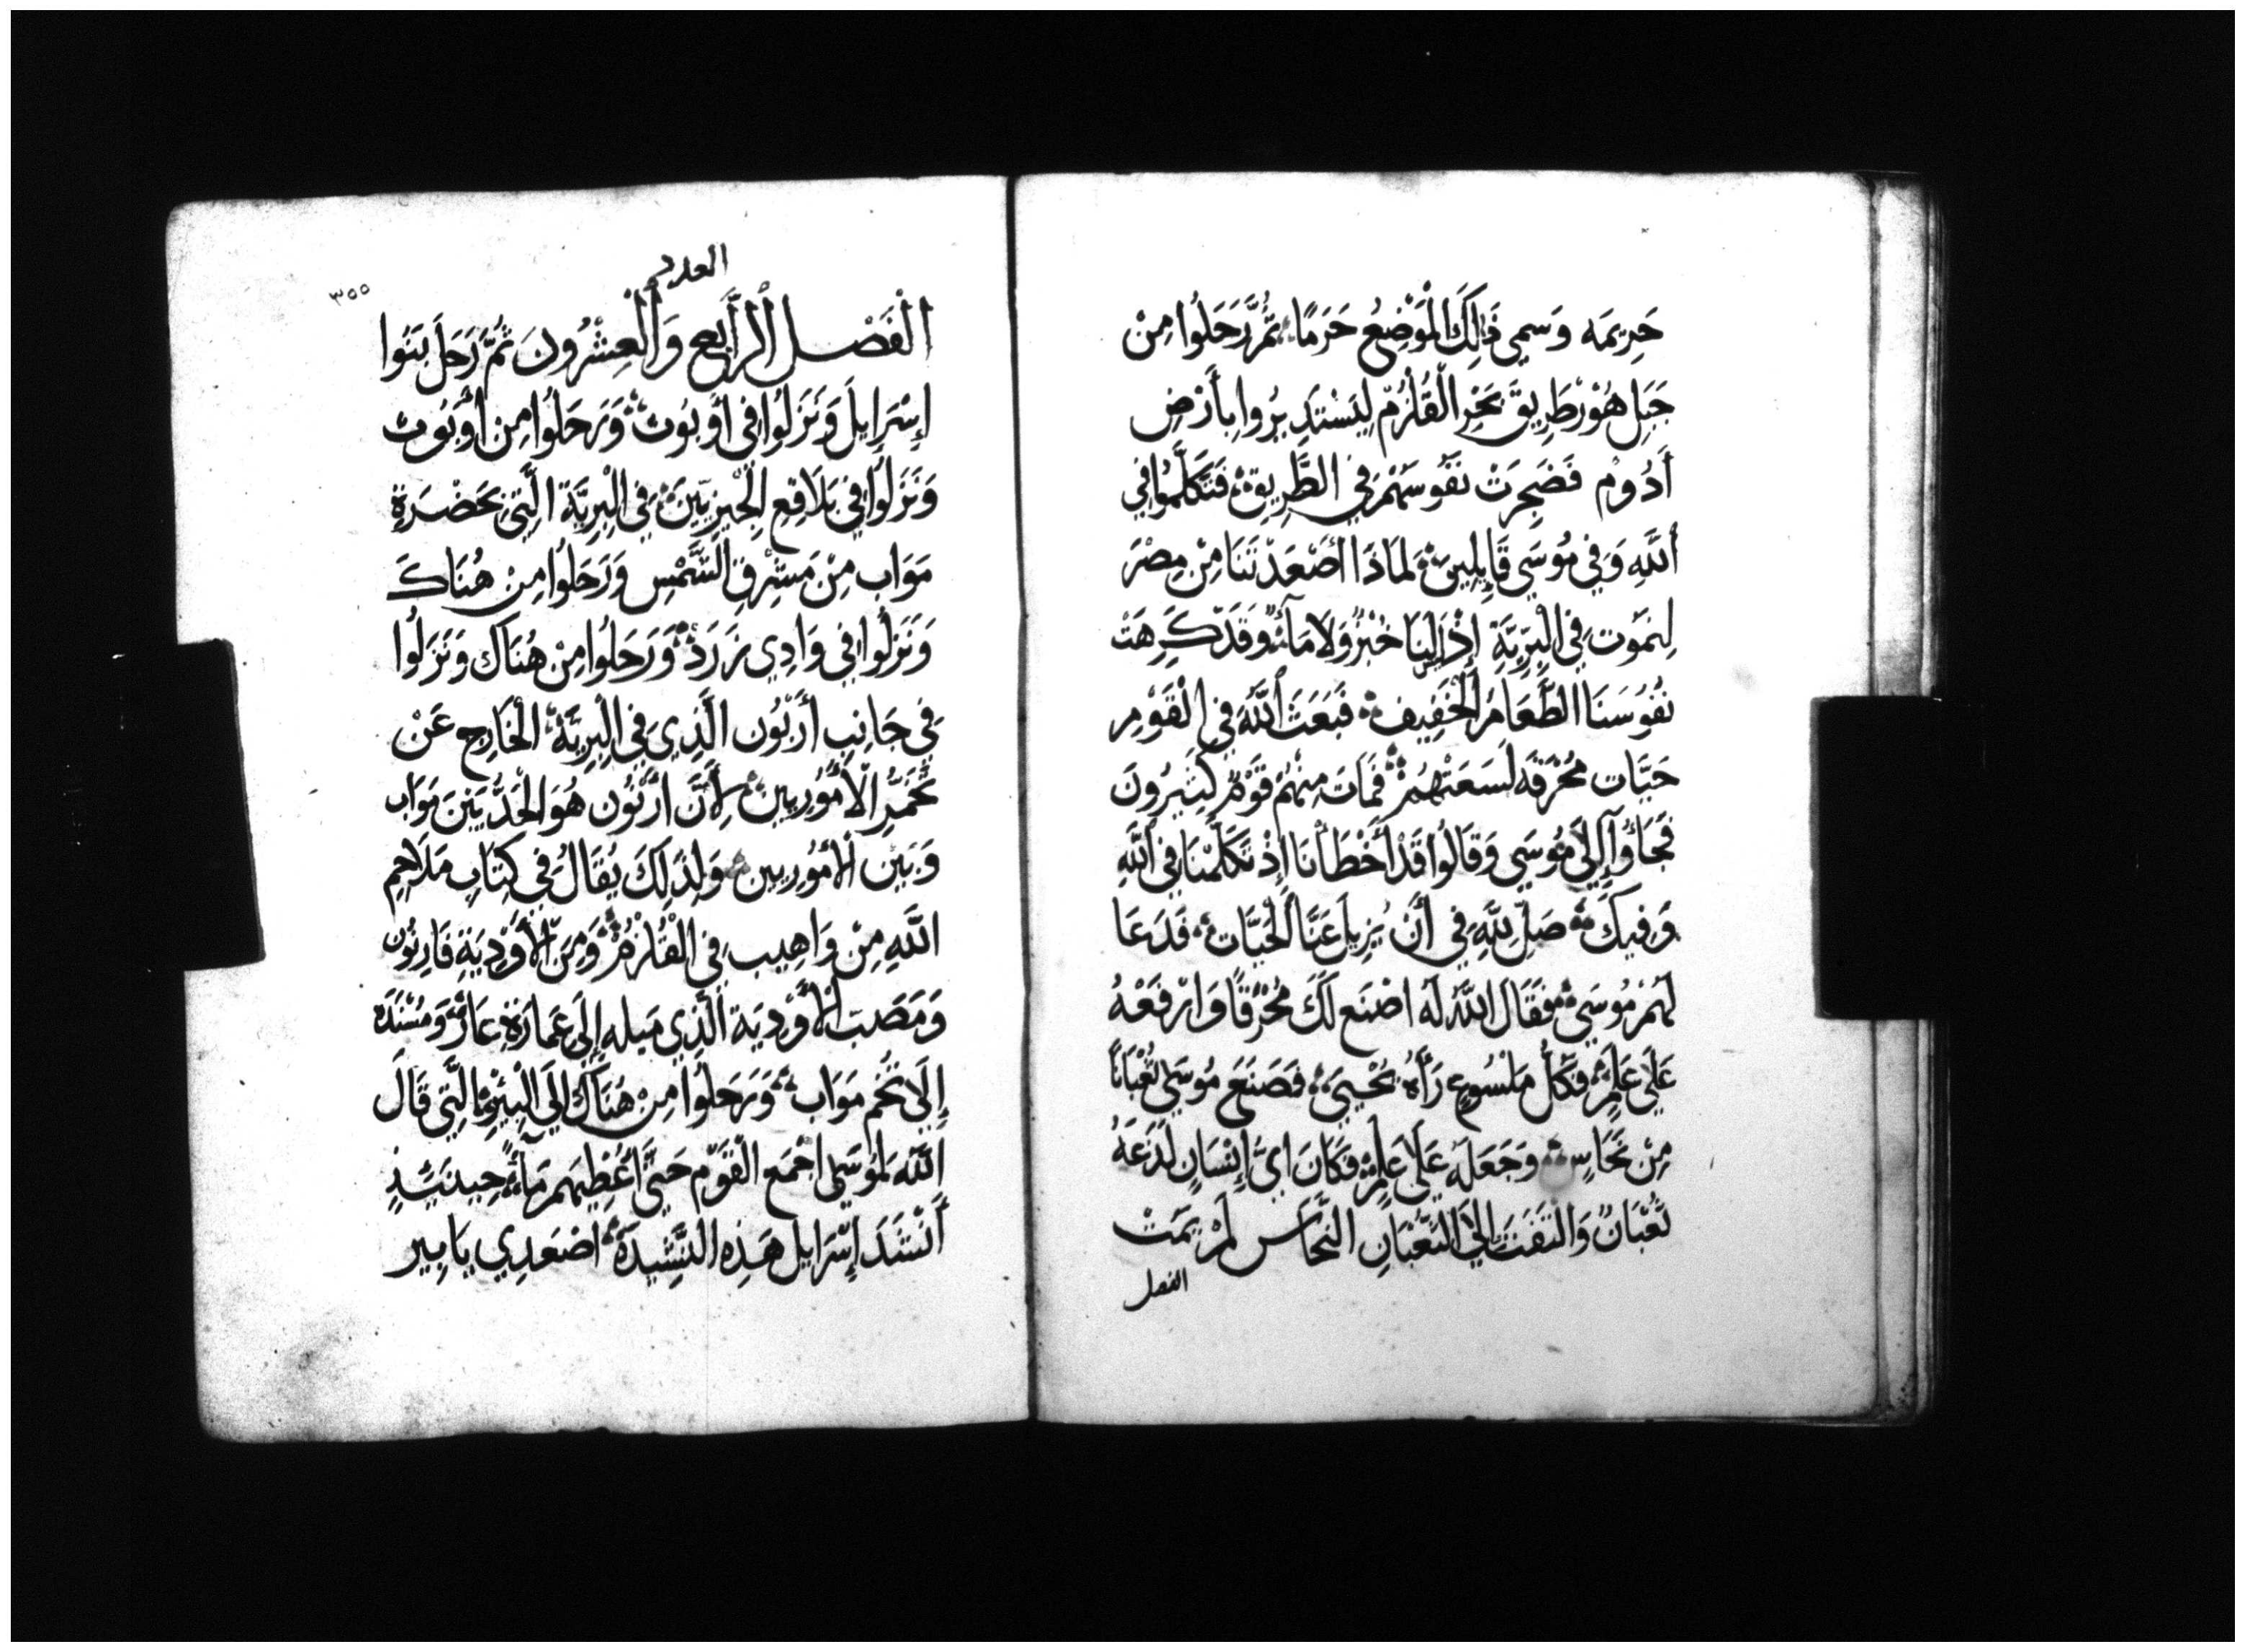 حَرِيمَه وَسمي ذَلِكَ الْمَوْضِعُ حَرَمًا، ثُمَّ رَحَلُوا مِنْ
جَبَلِ هُوْر طَرِيقَ بَحْرِ الْقُلْزُمْ لِيَسْتَدِيرُوا بِأَرْضِ
أَدُومْ فَضَجِرَتْ نَفُوسَهُمْ فِي الطَّرِيقِ فَتَكَلَّمُوا فِي
اللَّهِ وَفِي مُوسَي قَايِلِينَ لمَاذَا أَصْعَدْتَنَا مِنْ مِصْرَ
لِنَمَوْت فِي الْبِرِّيَّةِ إِذْ لَيْسَ لنَا خُبْزٌ وَلَا مَآءٌ وَقَدْ كَرِهَتْ
نُفُوسَنَا الطَّعَامَ الْخَفِيف فَبَعَثَ اللَّهُ فِي الْقَوْمِ
حَيَّات مُحْرَقَه لَسَعَتْهُمْ فَمَاتَ مِنْهُمْ قَوْمٌ كَثِيرُونَ
فَجَاؤُا إِلَي مُوسَي وَقَالُوا قَدْ أَخْطَأْنَا إِذْ تَكَلَّمْنَا فِي اللَّهِ
وَفِيكَ صَلِّ لِلَّهِ فِي أَنْ يُزِيلَ عَنَّا الْحَيَّات فَدَعَا
لَهُمْ مُوسَي فَقَالَ اللَّهُ لَه اصْنَع لَكَ مُحْرِقًا وَارْفَعْهُ
عَلَي عَلَمٍ فَكُلُّ مَلْسُوعٍ رَأَهُ يُحْيَي فَصَنَعَ مُوسَي ثُعْبَانًا
مِنْ نُحَاسٍ وَجَعَلَه عَلَي عَلَمٍ فَكَانَ أَيُّ إِنْسَانٍ لَدَغَهُ
ثُعْبَانٌ وَالْتَفَتَ إِلَي الثُّعْبَانِ النُّحَاسِ لَمْ يَمُتْ
الفصل
العدد
٣٥٥
الْفَصْل الرَّابِع وَالْعِشْرُونَ ثُمَّ رَحَلَ بَنُوا
إِسْرَايِلَ وَنَزَلُوا فِي أُوبُوث وَرَحَلُوا مِنْ أُوبُوث
وَنَزَلُوا فِي بَلَاقِعِ الْجِيزِيِّينَ فِي الْبِرِيَّة الَّتِي بَحَضْرَةِ
مَوَاب مِنْ مَشْرِقِ الشَّمْسِ وَرَحَلُوا مِنْ هُنَاكَ
وَنَزَلُوا فِي وَادِي زَرَدْ وَرَحَلُوا مِنْ هُنَاكَ وَنَزَلُوا
فِي جَانِبِ أَرْنُون الَّذِي فِي الْبِرِيَّة الْخَارِج عَنْ
تُخُمِ الْأَمُورِيين لِأَنَّ أَرْنُون هُوَ الْحَدُّ بَيْنَ مَوَاب
وَبَيْن الْأَمُورِيين وَلِذَلِكَ يُقَالُ فِي كِتَابِ مَلَاحِمِ
اللَّهِ مِنْ وَاهِيب فِي الْقُلْزُمْ وَمِنَ الْأَوْدِيَةِ فَارْنُون
وَمَصَبّ الْأَوْدِيَة الَّذِي مَيله إِلَي عَمَارَةِ عَارْ وَمُسْنَدَه
إِلَي تُخُم مَوَاب وَرَحَلُوا مِنْ هُنَاكَ إِلَي الْبِيْرِ الَّتِي قَالَ
اللَّهُ لمُوسَي اجْمَع الْقَوْم حَتَّي أُعْطِيَهِم مَآءً حِينَيْذٍ
أَنْشَدَ إِسْرَايِل هَذِه النَّشِيدَة اصْعَدِي يَا بِير